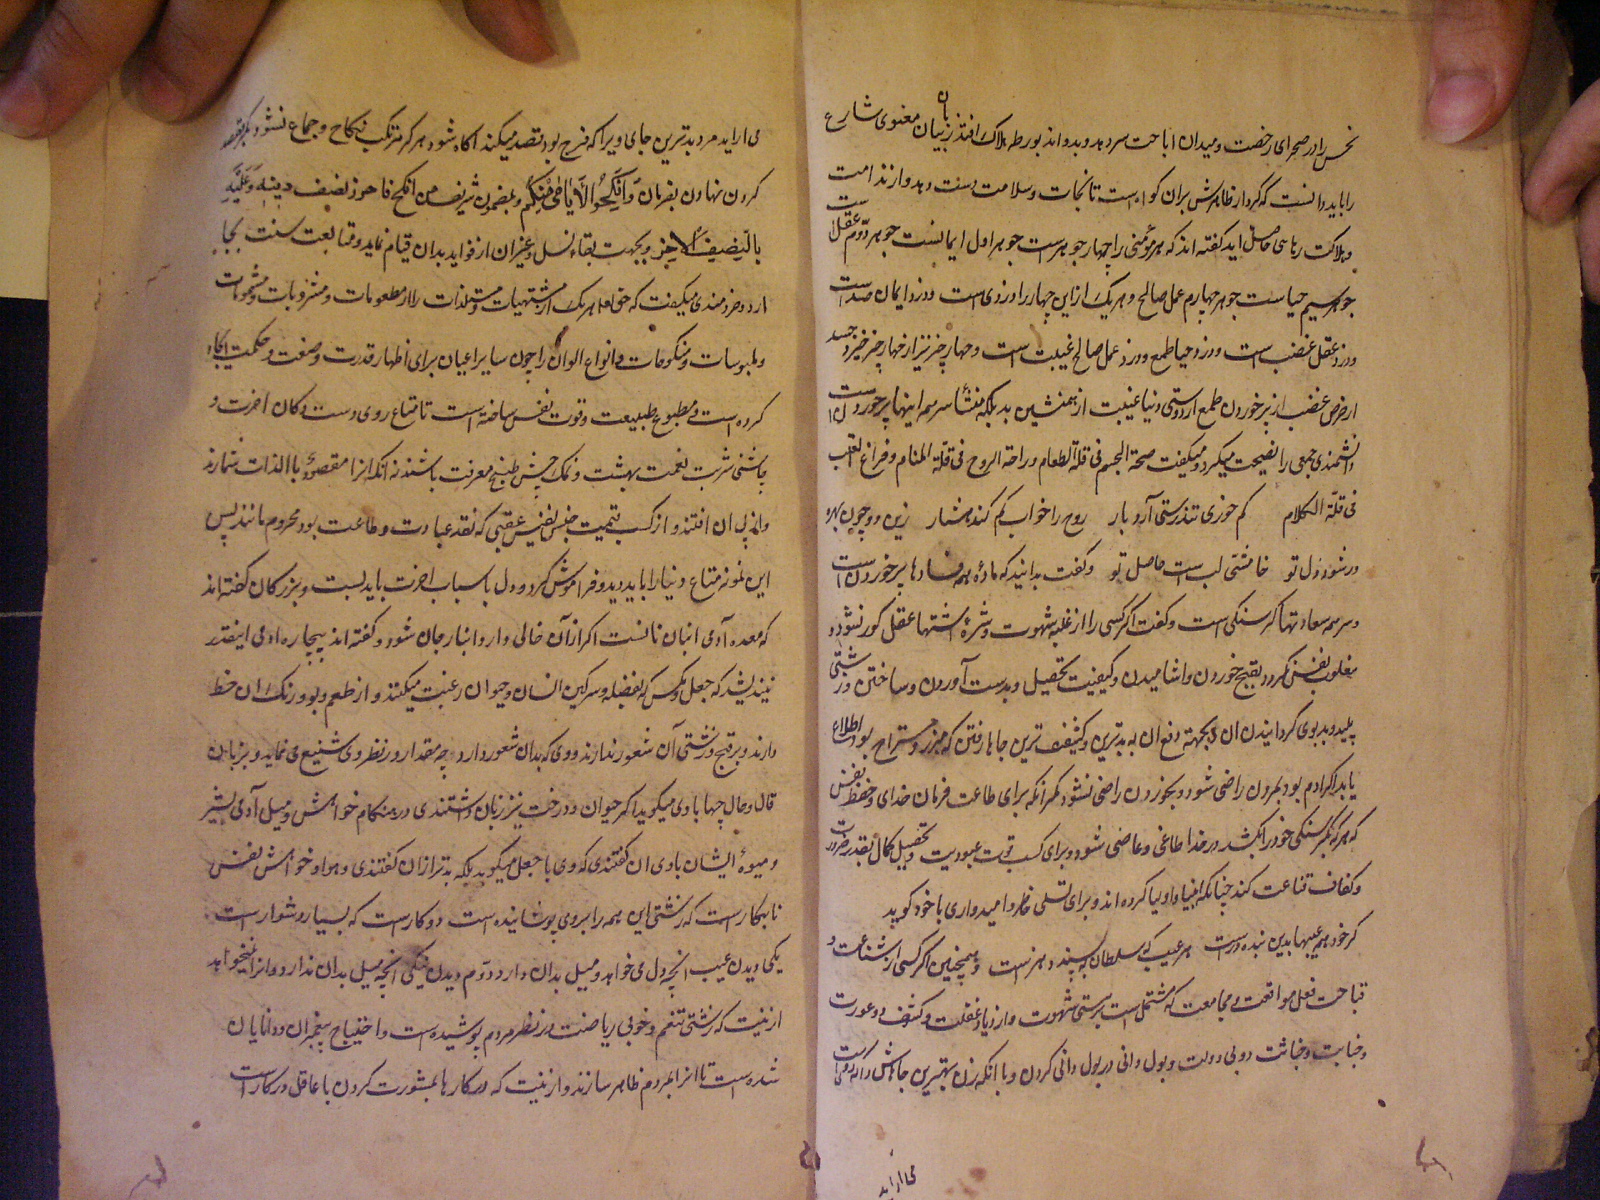 نحس را در صحرای رخصت و میدان اباحت سر دهد و بدواند بورطه هلاک افتد زیان معنوی شارع
را باید دانست که کردار ظاهرش بران کواه است تا نجات و سلامت دست دهد و از ندامت
و هلاکت رهایی حاصل اید گفته اند که هر مؤمنی را چهار جوهرست جوهر اول ایمانست جوهر دوم عقل است
جوهر سیم حیاست جوهر چهارم عمل صالح و هر یک از این چهار را دزدی است دزد ایمان حسد است
دزد عقل غضب است دزد حیا طمع و دزد عمل صالح غیبت است و چهار چیز نیز از چهار چیز خیزد حسد
از حرص غضب از پر خوردن طمع از دوستی دنیا غیبت از همنشین بد بلکه منشأ هر همه اینها پر خوردنست
دانشمندی جمعی را نصیحت میکرد و میکفت صحة الجسم فی قلة الطعام و راحة الروح فی قلة المنام و فراغ القلب
فی قلة الکلام کم خوری تندرستی آرد بار روح را خواب کم کند هشیار زین دو چون بهره
ور شود دل تو خامشی لب است حاصل تو و گفت بدانید که ماده همه فسادها پر خوردن است
و سرمه سعادتها کرسنکی است و گفت اکر کسی را از غلبه شهوت و شره اشتها عقل کور نشود و
مغلوب نفس نکردد بقبح خوردن و اشامیدن و کیفیت تحصیل و بدست آوردن و ساختن و زشتی
پلید و بدبوی کردانیدن ان و بجهة دفع ان به بدترین و کثیف ترین جاها رفتن که مبرز و مستراح بود اطلاع
یابد اکر ادم بود بمردن راضی شود و بخوردن راضی نشود مکر انکه برای طاعت فرمان خدای و حفظ نفس
که هر که بکرسنکی خود را بکشد در خدا طاغی و عاصی شود و برای کسب قوت عبودیت و تحصیل کمال بقدر ضرورت
و کفاف قناعت کند چنانکه انبیا و اولیا کرده اند و برای تسلی خاطر و امیدواری با خود کوید
کر خود همه عیبها بدین بنده درست هر عیب که سلطان بپسندد هنرست و همچنین اکر کسی از شناعت و
قباحت فعل مواقعت و مجامعت که مشتمل است بر سستی شهوت و ازدیاد غفلت و کشف دو عورت
و جنابت و خباثت دو بی دولت و بول دانی در بول دانی کردن و با انکه زن بهترین جاهاش را که رویست
می اراید
می اراید مرد بدترین جای ویرا که فرج بود قصد میکند اکاه شود هرکز مرتکب نکاح و جماع نشود مکر بقصد
کردن نهادن بفرمان وَاَنْکِحُوا الْاَیَامٰی مِنْکُمْ و بمضمون شریف من انکح فاحرز نصف دینه وَعَلَیْهِ
بالنِصف الآخر و بجهت بقاء نسل و غیر ان از فواید بدان قیام نماید و متابعت سنت بجا
ارد و خردمندی میکفت که حق تعالی هر یک از مشتهیات و مستلذات را از مطعومات و مشروبات و مشمومات
و ملبوسات و منکوحات و انواع الوان را چون سایر اعیان برای اظهار قدرت و صنعت و حکمت ایجاد
کرده است و مطبوع طبیعت و قوت نفس ساخته است تا متاع روی دست دکان اخرت و
چاشنی شربت نعمت بهشت و نمک چش طبخ معرفت باشند نه انکه انرا مقصود بالذات شمارند
و از پی ان افتند و از کسب قیمت جنس نفیس عقبی که نقد عبادت و طاعت بود محروم مانند پس
این نمونه متاع دنیا را باید دید و فراموش کرد و دل باسباب اخرت باید بست و بزرکان کفته اند
که معده آدمی انبان نانست اکر از آن خالی دارد انبار جان شود و کفته اند بیچاره ادمی اینقدر
نیندیشد که جعل و مکس که بفضله و سرکین انسان و حیوان رغبت میکنند و از طعم و بو و رنک ان حظ
دارند و بر قبح و زشتی آن شعور ندارند و وی که بدان شعور دارد چه مقدار در نظر وی شنیع می نماید و بزبان
قال و حال چها با وی میکوید اکر حیوان و درخت نیز زبان داشتندی در هنکام خواهش و میل آدمی بشیر
و میوهٔ ایشان با وی ان کفتندی که وی با جعل میکوید بلکه بدتر از ان کفتندی و هوا و خواهش نفس
نابکارست که زشتی این همه را بر وی پوشانیده است دو کار است که بسیار دشوار است
یکی دیدن عیب انچه دل می خواهد و میل بدان دارد دوم دیدن نیکی انچه میل بدان ندارد و انرا نمیخواهد
ازینست که زشتی تنعم و خوبی ریاضت در نظر مردم پوشیده است و احتیاج پیغمبران و دانایان
شده است تا انرا بمردم ظاهر سازند و ازینست که در کارها بمشورت کردن با عاقل در کار است